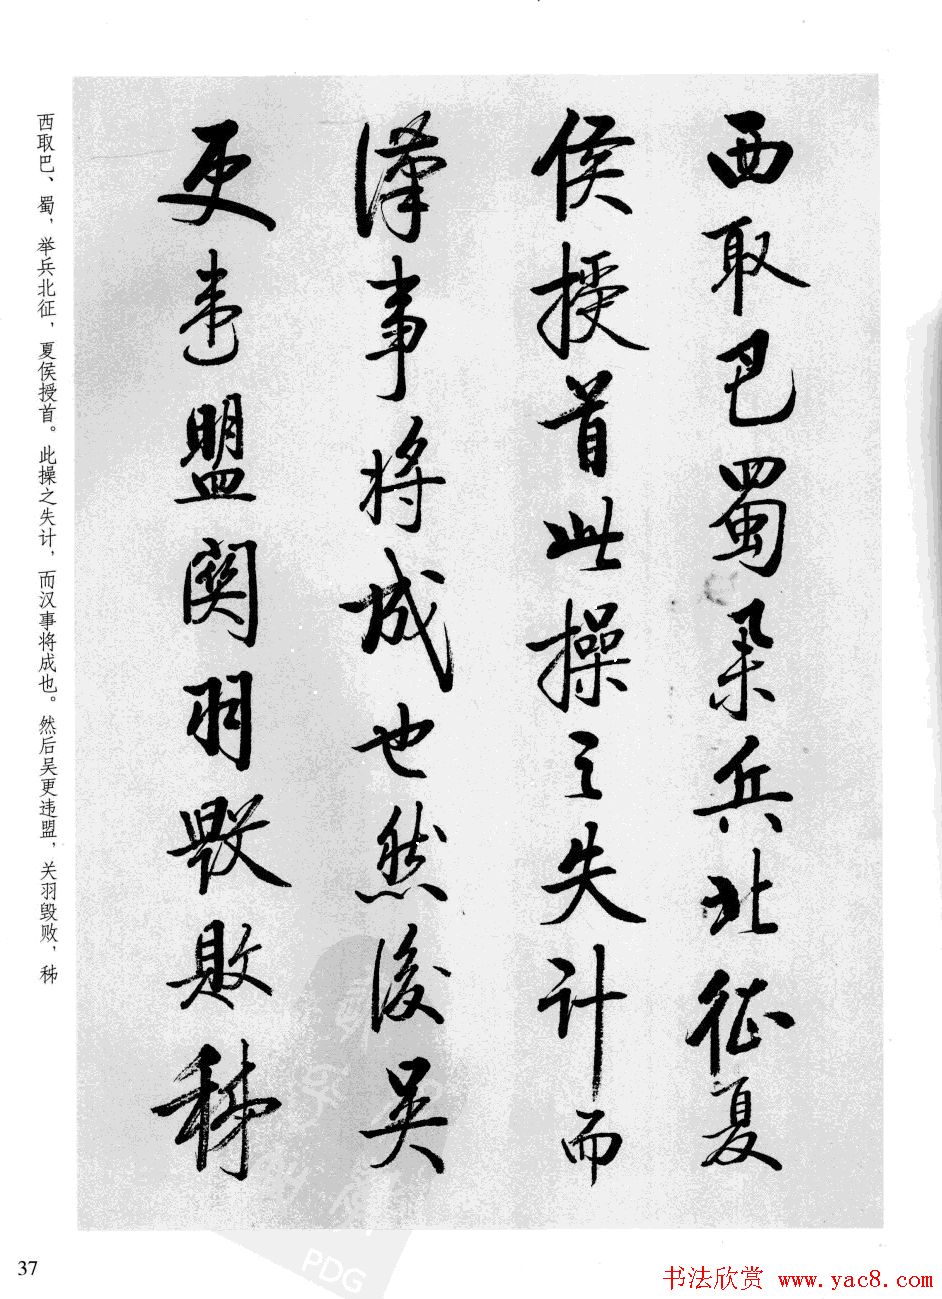 西取巴蜀举兵北征夏
侯授首此操之失计而
漢事将成也然後吴
更违盟関羽毁敗秭
西取巴、蜀，举兵北征，夏侯授首。此操之失计，而汉事将成也。然后吴更违盟，关羽毁败，秭
37
PDG
书法欣赏 www.yac8.com